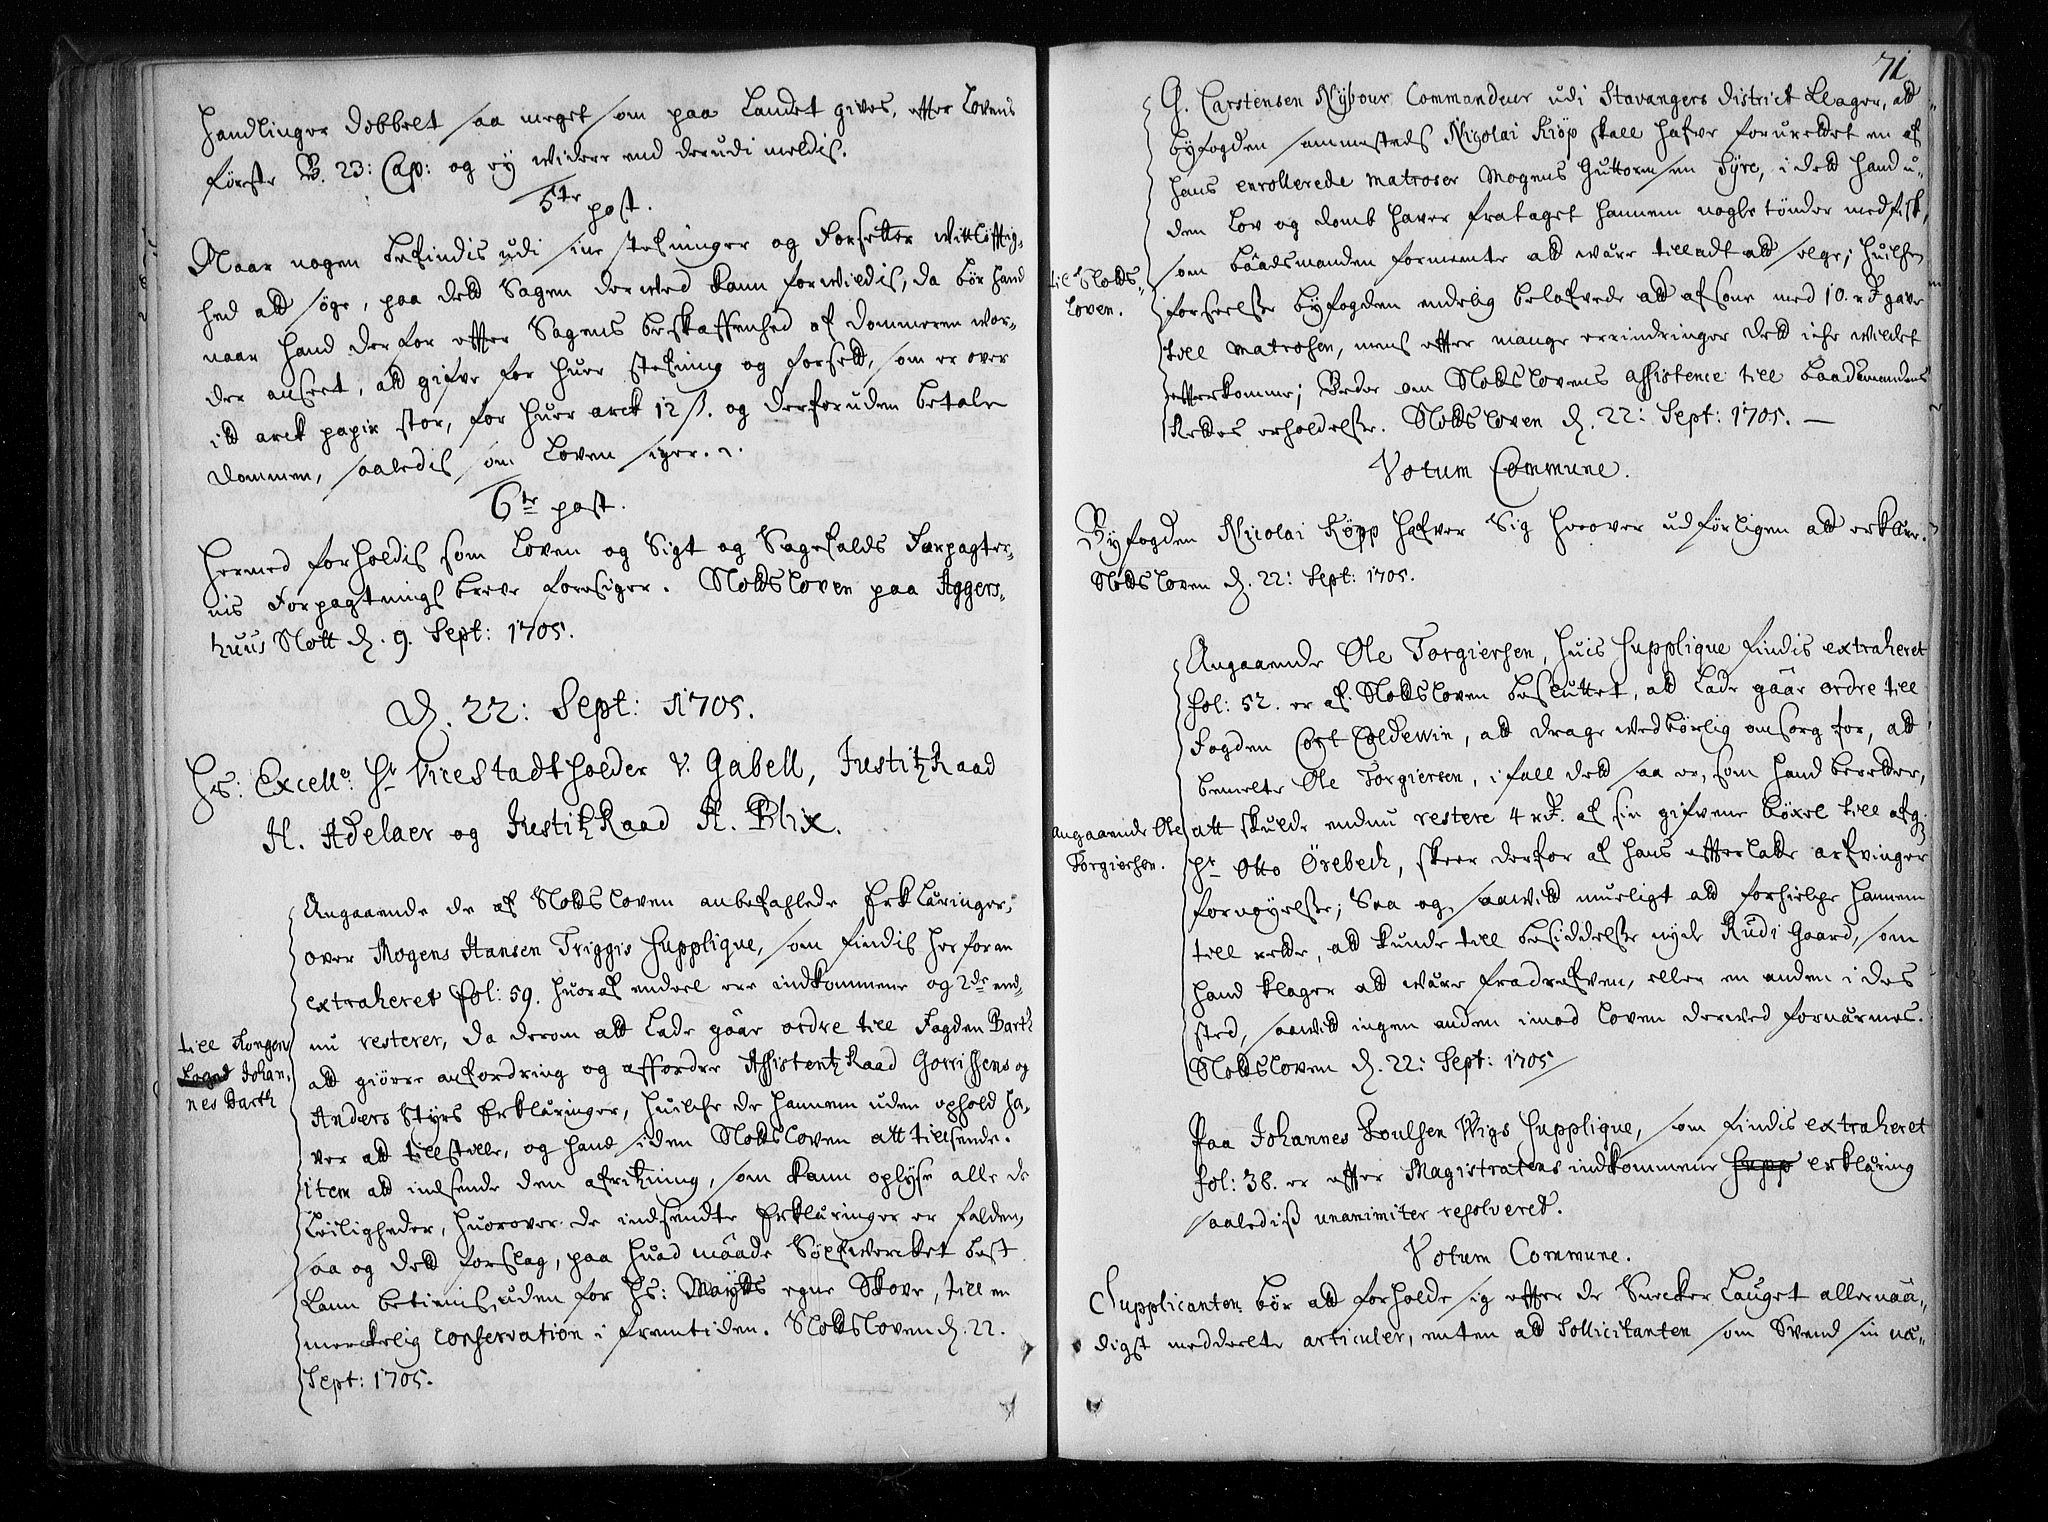 Handlinger dobbelt saa meget som paa Landet gives, efter Lovens
første B. 23: Cap: og ey widere end derudi meldis.
5te post.
Naar nogen befindis udi sine stefninger og Forsetter Wittløfftig-
hed att søge, paa dett Sagen derwed kann forwildis, da bør hand
naar hand derfor efter Sagens beskaffenhed af dommeren wor-
der anseet, att gifve for huer stefning og forsett, som er over
itt arck papir stor, for huer arck 12 s. og derforuden betale
dommen, saaledis som Loven siger.
6te post.
Hermed forholdis som Loven og Sigt og Sagefalds Forpagter-
nis Forpagtnings breve foresiger. Slottsloven paa Aggers-
huus Slott d. 9. Sept: 1705.
D. 22: Sept: 1705.
Hs: Excell: Hr Vicestadtholder v. Gabell, Justitz Raad
H. Adelaer og Justitz Raad H. Blix.
Angaaende de af Slottsloven anbefahlede Erklæringer,
over Mogens Hansen Triggis Supplique, som findis her foran
extraheret fol: 59. huoraf endeel ere indkommene og 2de end-
nu resterer, da derom att lade gaar ordre till Fogden Barth
till Kongens
Foged Johan-
nes Barth
att giøre anfordring og affordre Assistentz Raad Gorrissens og
Anders Styrs Erklæringer, huilche de hannem uden ophold ha-
ver att tillstille, og hand siden Slottsloven att tillsende.
item att indsende den afritzning, som kann oplyse alle de
Leiligheder, huorover de indsendte Erklæringer er falden,
saa og dett forslag, paa huad maade Søløfwercket best
kann betienis uden for Hs: Maytts egne Skove, till en
merckelig conservation i fremtiden. Slottsloven d. 22.
Sept: 1705.
71
G. Carstensen Nybour Commandeur udi Stavangers District klager, att
byfogden sammesteds Nicolai Kiøp skall hafve forurettet en af
hans enrollerede matroser Mogens Guttormsen Tyre, i dett hand u-
den Lov og domb haver frataget hannem nogle tønder med fisk,
som baadsmanden formeente att være tilladt att selge; huilchen
till Slotts-
Loven.
forseelse byfogden endelig belofvede att afsone med 10. rd gave
till matrosen, mens efter mange errindringer dett iche wildet
efterkomme; Beder om Slottslovens assistence till baadsmandens
Rettes erholdelse. Slottsloven d. 22: Sept: 1705.
Votum Commune.
Byfogden Nicolai Køpp hafver Sig herover udførligen att erklære.
Slottsloven d. 22: Sept: 1705.
Angaaende Ole Torgiersen, huis Supplique findis extraheret
fol: 52. er af Slottsloven besluttet, att lade gaar ordre till
Fogden Cort Coldewin, att drage wedbørlig omsorg for, att
bemelte Ole Torgiersen, i fall dett saa er, som hand beretter,
Angaaende Ole
Torgiersen.
att skulde endnu restere 4 rd. af sin gifvene bøxel till afg:
Hr Otto Örebech, skeer derfor af hans efterlatte arfvinger
fornøyelse; Saa og, saawitt mueligt att forhielpe hannem
till rette, att kunde till besiddelse nyde Rudi Gaard, som
hand klager att være fradrefven, eller en anden i des
sted, saawitt ingen anden imod Loven derwed fornærmes.
Slottsloven d. 22: Sept: 1705
Paa Johannes Poulsen Wigs Supplique, som findis extraheret
fol: 38. er efter Magistratens indkommene Supp erklæring
saalediß unanimiter resolveret.
Votum Commune.
Supplicanten bør att forholde sig efter de Snecker Lauget allernaa-
digst meddeelte articuler, enten att Sollicitanten som Svend sin na-